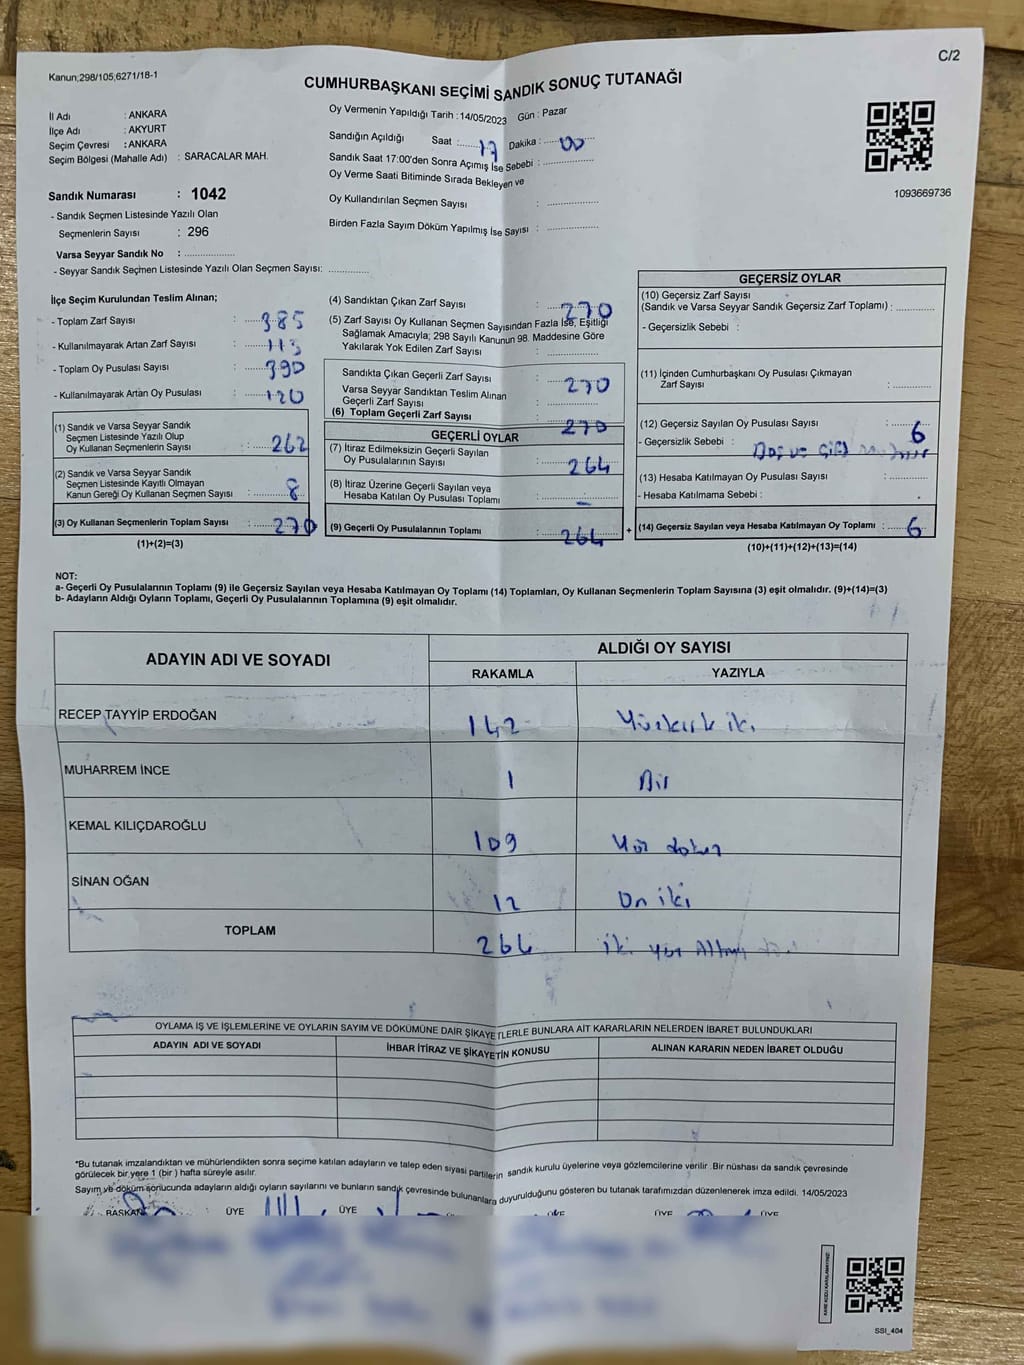 C/2
Kanun;298/105;6271/18-1
CUMHURBAŞKANI SEÇİMİ SANDIK SONUÇ TUTANAĞI
İl Adı : ANKARA
İlçe Adı : AKYURT
Seçim Çevresi : ANKARA
Seçim Bölgesi (Mahalle Adı) : SARACALAR MAH.
Oy Vermenin Yapıldığı Tarih :14/05/2023 Gün : Pazar
Sandığın Açıldığı Saat :...... 17 Dakika :...... 00
Sandık Saat 17:00'den Sonra Açımış İse Sebebi :
Oy Verme Saati Bitiminde Sırada Bekleyen ve
Oy Kullandırılan Seçmen Sayısı :
Birden Fazla Sayım Döküm Yapılmış İse Sayısı :
1093669736
Sandık Numarası : 1042
- Sandık Seçmen Listesinde Yazılı Olan
Seçmenlerin Sayısı : 296
Varsa Seyyar Sandık No :
- Seyyar Sandık Seçmen Listesinde Yazılı Olan Seçmen Sayısı:
İlçe Seçim Kurulundan Teslim Alınan;
- Toplam Zarf Sayısı : 385
- Kullanılmayarak Artan Zarf Sayısı : 115
- Toplam Oy Pusulası Sayısı : 390
- Kullanılmayarak Artan Oy Pusulası : 120
(1) Sandık ve Varsa Seyyar Sandık
Seçmen Listesinde Yazılı Olup
Oy Kullanan Seçmenlerin Sayısı : 262
(2) Sandık ve Varsa Seyyar Sandık
Seçmen Listesinde Kayıtlı Olmayan
Kanun Gereği Oy Kullanan Seçmen Sayısı : 8
(3) Oy Kullanan Seçmenlerin Toplam Sayısı : 270
(1)+(2)=(3)
(4) Sandıktan Çıkan Zarf Sayısı : 270
(5) Zarf Sayısı Oy Kullanan Seçmen Sayısından Fazla İse, Eşitliği
Sağlamak Amacıyla; 298 Sayılı Kanunun 98. Maddesine Göre
Yakılarak Yok Edilen Zarf Sayısı :
Sandıkta Çıkan Geçerli Zarf Sayısı : 270
Varsa Seyyar Sandıktan Teslim Alınan
Geçerli Zarf Sayısı :
(6) Toplam Geçerli Zarf Sayısı : 270
GEÇERLİ OYLAR
(7) İtiraz Edilmeksizin Geçerli Sayılan
Oy Pusulalarının Sayısı : 264
(8) İtiraz Üzerine Geçerli Sayılan veya
Hesaba Katılan Oy Pusulası Toplamı : -
(9) Geçerli Oy Pusulalarının Toplamı : 264 +
GEÇERSİZ OYLAR
(10) Geçersiz Zarf Sayısı
(Sandık ve Varsa Seyyar Sandık Geçersiz Zarf Toplamı) :
- Geçersizlik Sebebi :
(11) İçinden Cumhurbaşkanı Oy Pusulası Çıkmayan
Zarf Sayısı :
(12) Geçersiz Sayılan Oy Pusulası Sayısı : 6
- Geçersizlik Sebebi : Boş ve çift
(13) Hesaba Katılmayan Oy Pusulası Sayısı :
- Hesaba Katılmama Sebebi :
(14) Geçersiz Sayılan veya Hesaba Katılmayan Oy Toplamı : 6
(10)+(11)+(12)+(13)=(14)
NOT:
a- Geçerli Oy Pusulalarının Toplamı (9) ile Geçersiz Sayılan veya Hesaba Katılmayan Oy Toplamı (14) Toplamları, Oy Kullanan Seçmenlerin Toplam Sayısına (3) eşit olmalıdır. (9)+(14)=(3)
b- Adayların Aldığı Oyların Toplamı, Geçerli Oy Pusulalarının Toplamına (9) eşit olmalıdır.
ADAYIN ADI VE SOYADI ALDIĞI OY SAYISI
RAKAMLA YAZIYLA
RECEP TAYYİP ERDOĞAN 142 Yüzkırk iki
MUHARREM İNCE 1 Bir
KEMAL KILIÇDAROĞLU 109 Yüz dokuz
SİNAN OĞAN 12 On iki
TOPLAM 264 iki yüz Altmış
OYLAMA İŞ VE İŞLEMLERİNE VE OYLARIN SAYIM VE DÖKÜMÜNE DAİR ŞİKAYETLERLE BUNLARA AİT KARARLARIN NELERDEN İBARET BULUNDUKLARI
ADAYIN ADI VE SOYADI İHBAR İTİRAZ VE ŞİKAYETİN KONUSU ALINAN KARARIN NEDEN İBARET OLDUĞU
*Bu tutanak imzalandıktan ve mühürlendikten sonra seçime katılan adayların ve talep eden siyasi partilerin sandık kurulu üyelerine veya gözlemcilerine verilir .Bir nüshası da sandık çevresinde
görülecek bir yere 1 (bir ) hafta süreyle asılır.
Sayım ve döküm sonucunda adayların aldığı oyların sayılarını ve bunların sandık çevresinde bulunanlara duyurulduğunu gösteren bu tutanak tarafımızdan düzenlenerek imza edildi. 14/05/2023
BAŞKAN ÜYE ÜYE ÜYE ÜYE ÜYE
SSI_404